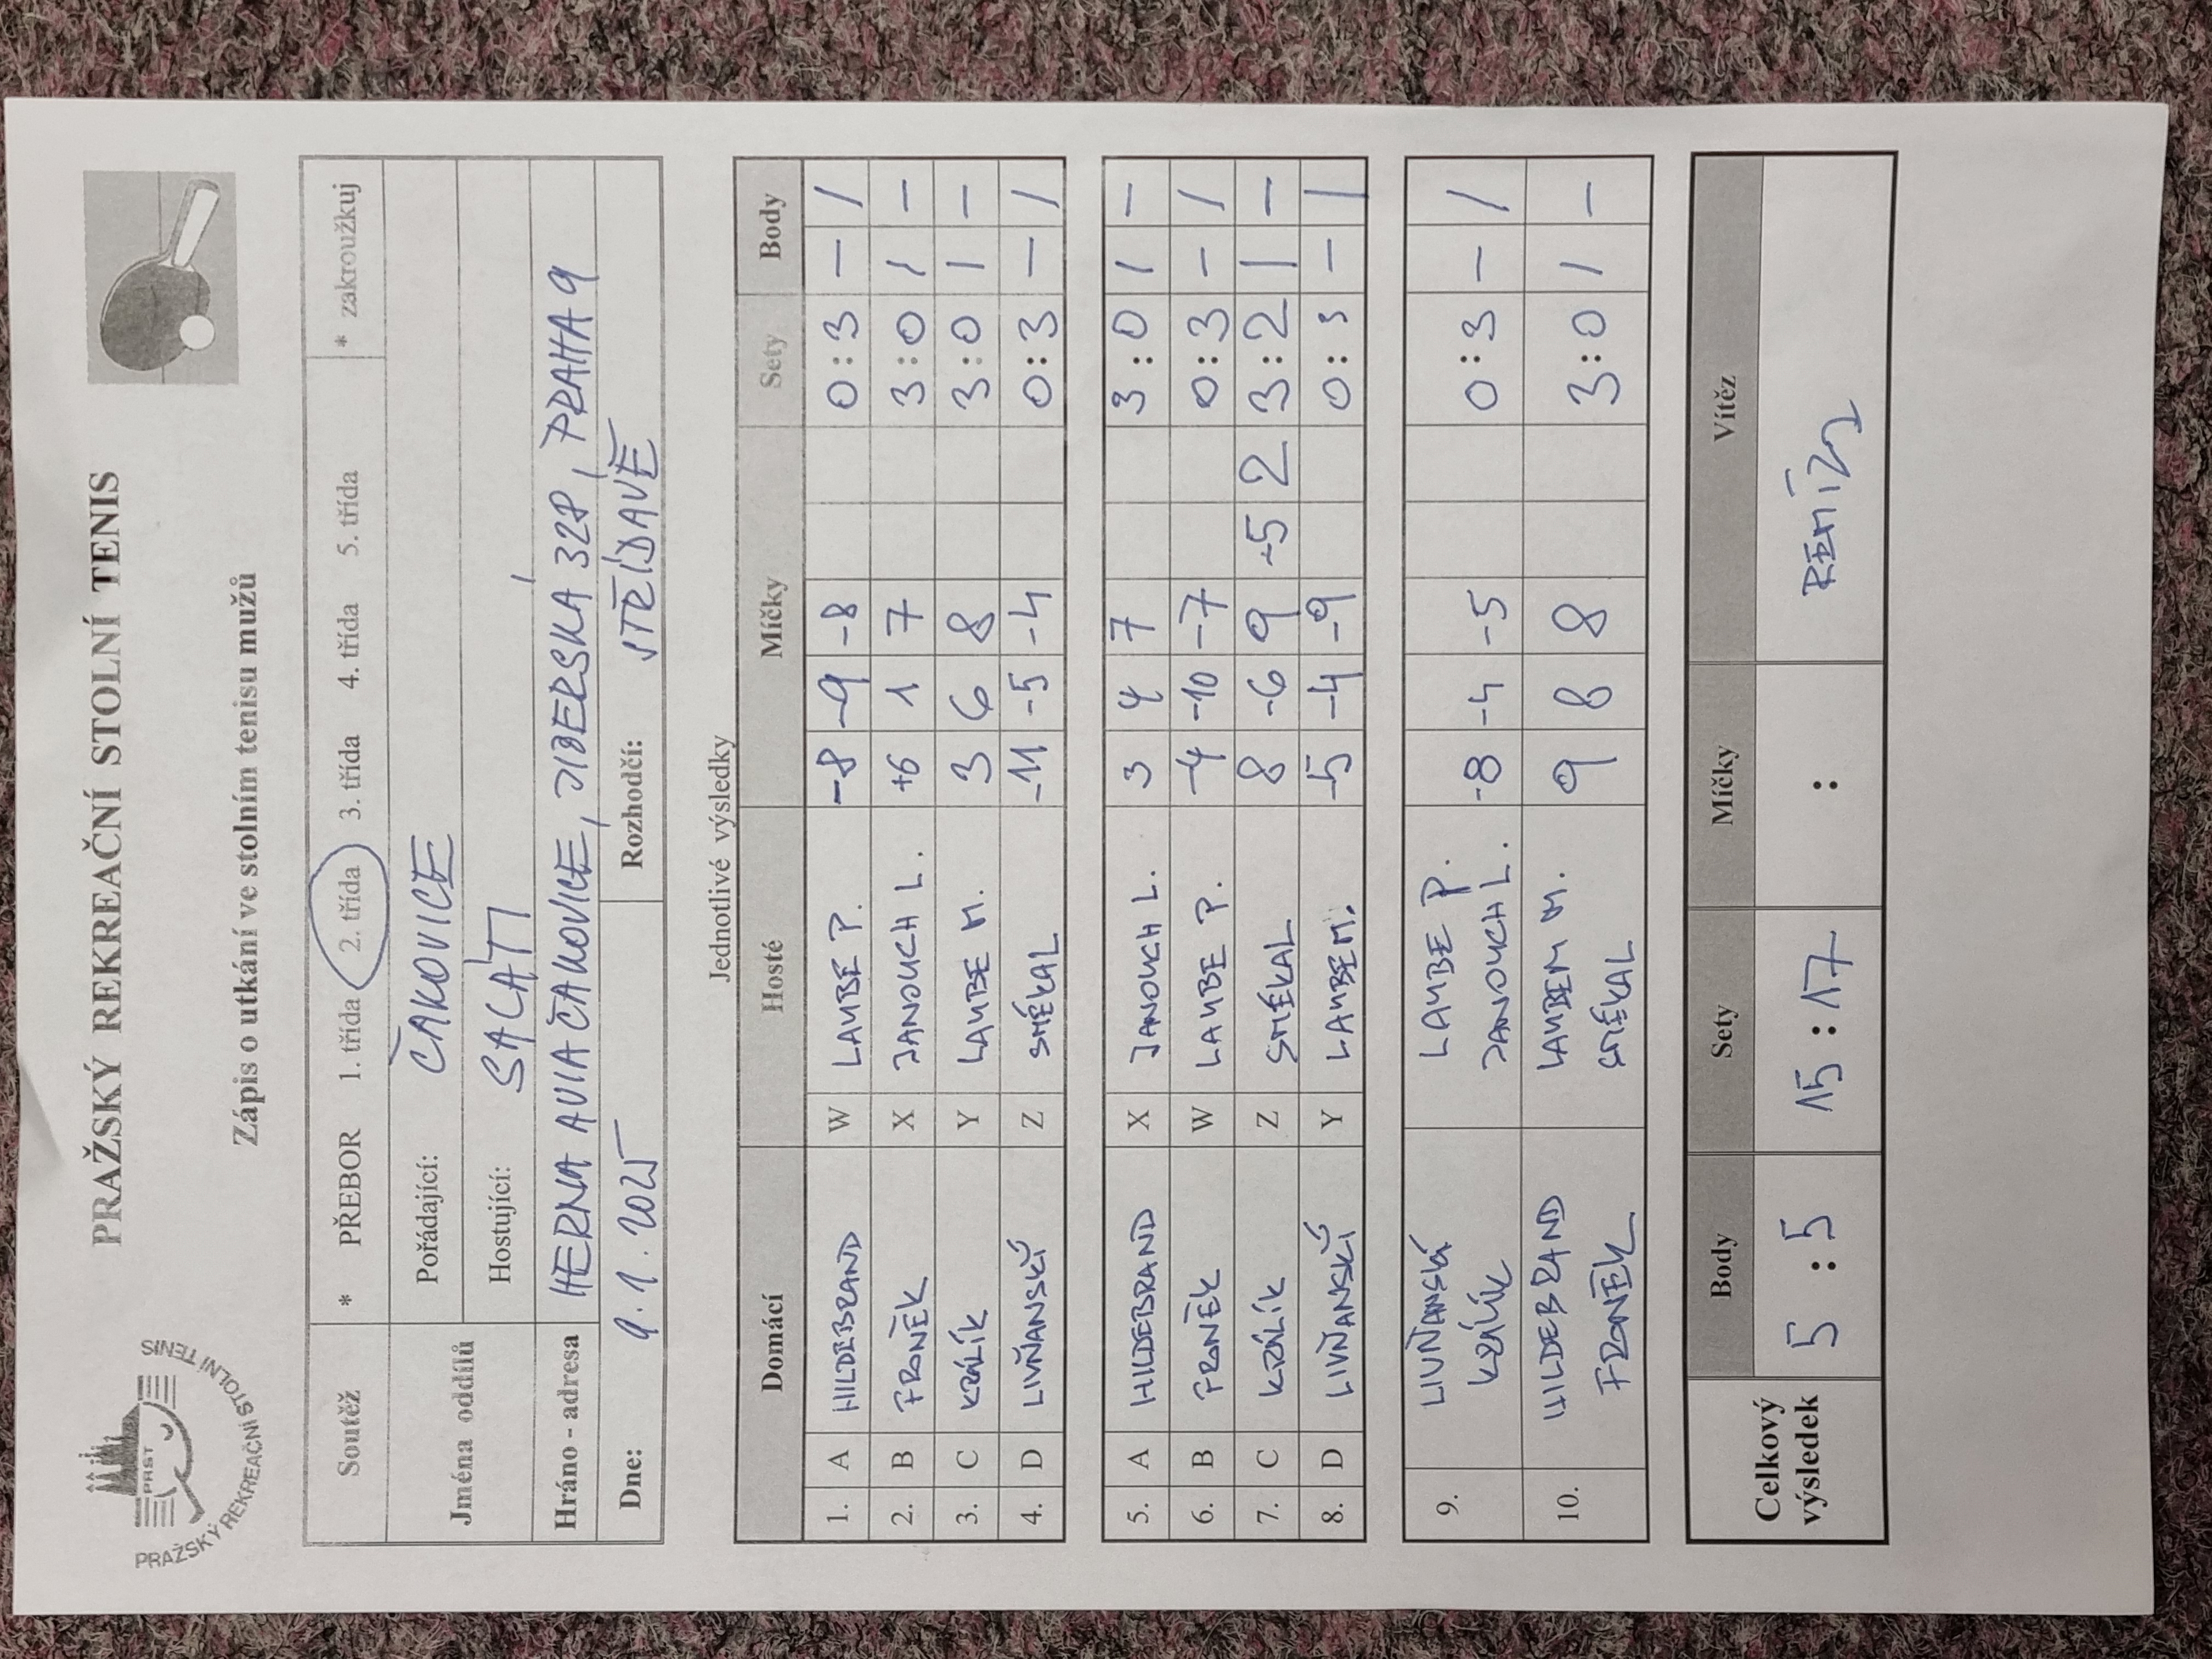 PRAŽSKÝ REKREAČNÍ STOLNÍ TENIS
PRST
PRAŽSKÝ REKREAČNÍ STOLNÍ TENIS
Zápis o utkání ve stolním tenisu mužů
Soutěž * PŘEBOR 1. třída 2. třída 3. třída 4. třída 5. třída * zakroužkuj
Jména oddílů Pořádající: ČAKOVICE
Hostující: SACATI
Hráno - adresa HERNA AVIA ČAKOVICE, JIBERSKÁ 328, PRAHA 9
Dne: 9.1.2025 Rozhodčí: STŘÍDAVĚ
Jednotlivé výsledky
Domácí Hosté Míčky Sety Body
1. A HILDEBRAND W LAUBE P. -8 -9 -8 0:3 - /
2. B FRONĚK X JANOUCH L. +6 1 7 3:0 / -
3. C KRÁLÍK Y LAUBE M. 3 6 8 3:0 | -
4. D LIVŇANSKÝ Z SMÉKAL -11 -5 -4 0:3 - /
5. A HILDEBRAND X JANOUCH L. 3 4 7 3:0 / -
6. B FRONĚK W LAUBE P. -4 -10 -7 0:3 - /
7. C KRÁLÍK Z SMÉKAL 8 -6 9 -5 2 3:2 | -
8. D LIVŇANSKÝ Y LAUBE M. -5 -4 -9 0:3 - |
9. LIVŇANSKÝ KRÁLÍK LAUBE P. JANOUCH L. -8 -4 -5 0:3 - /
10. HILDEBRAND FRONĚK LAUBE M. SMÉKAL 9 8 8 3:0 / -
Celkový výsledek Body Sety Míčky Vítěz
5:5 15:17 : REMÍZA